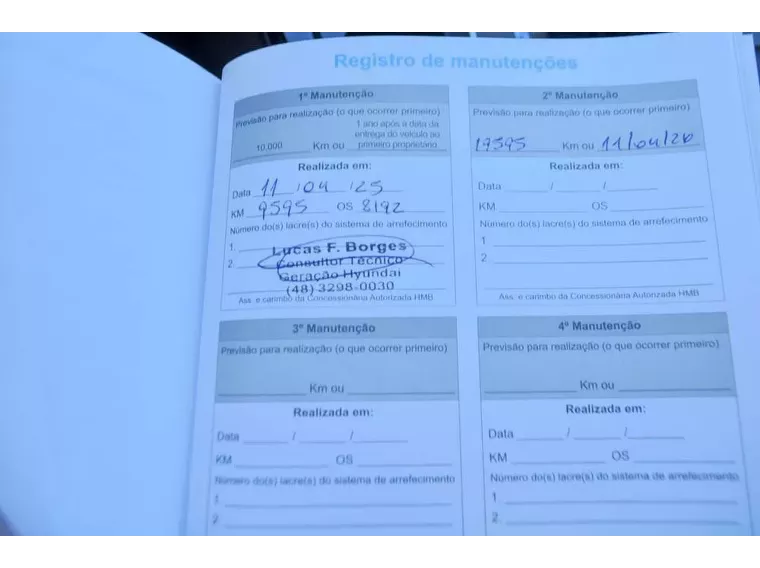 Registro de manutenções
1ª Manutenção
Previsão para realização (o que ocorrer primeiro)
10.000 Km ou 1 ano após a data da entrega do veículo ao primeiro proprietário
Realizada em:
Data 11 / 04 / 25
KM 9595 OS 8192
Número do(s) lacre(s) do sistema de arrefecimento
1.
2.
Lucas F. Borges
Consultor Técnico
Geração Hyundai
(48) 3298-0030
Ass. e carimbo da Concessionária Autorizada HMB
2ª Manutenção
Previsão para realização (o que ocorrer primeiro)
19595 Km ou 11/04/26
Realizada em:
Data / /
KM OS
Número do(s) lacre(s) do sistema de arrefecimento
1
2.
Ass. e carimbo da Concessionária Autorizada HMB
3ª Manutenção
Previsão para realização (o que ocorrer primeiro)
Km ou
Realizada em:
Data / /
KM OS
Número do(s) lacre(s) do sistema de arrefecimento
1
2.
4ª Manutenção
Previsão para realização (o que ocorrer primeiro)
Km ou
Realizada em:
Data / /
KM OS
Número do(s) lacre(s) do sistema de arrefecimento
1
2.